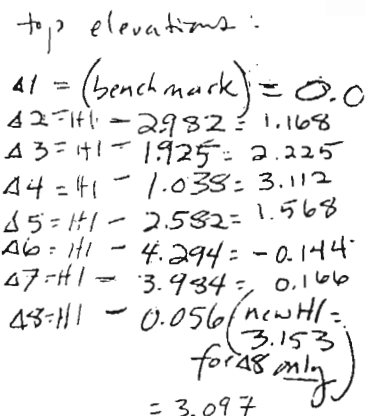 top elevations:
Δ1 = (benchmark) = 0.0
Δ2 = HI - 2.982 = 1.168
Δ3 = HI - 1.925 = 2.225
Δ4 = HI - 1.038 = 3.112
Δ5 = HI - 2.582 = 1.568
Δ6 = HI - 4.294 = -0.144
Δ7 = HI - 3.984 = 0.166
Δ8 = HI - 0.056 (new HI =
3.153
for Δ8 only)
= 3.097